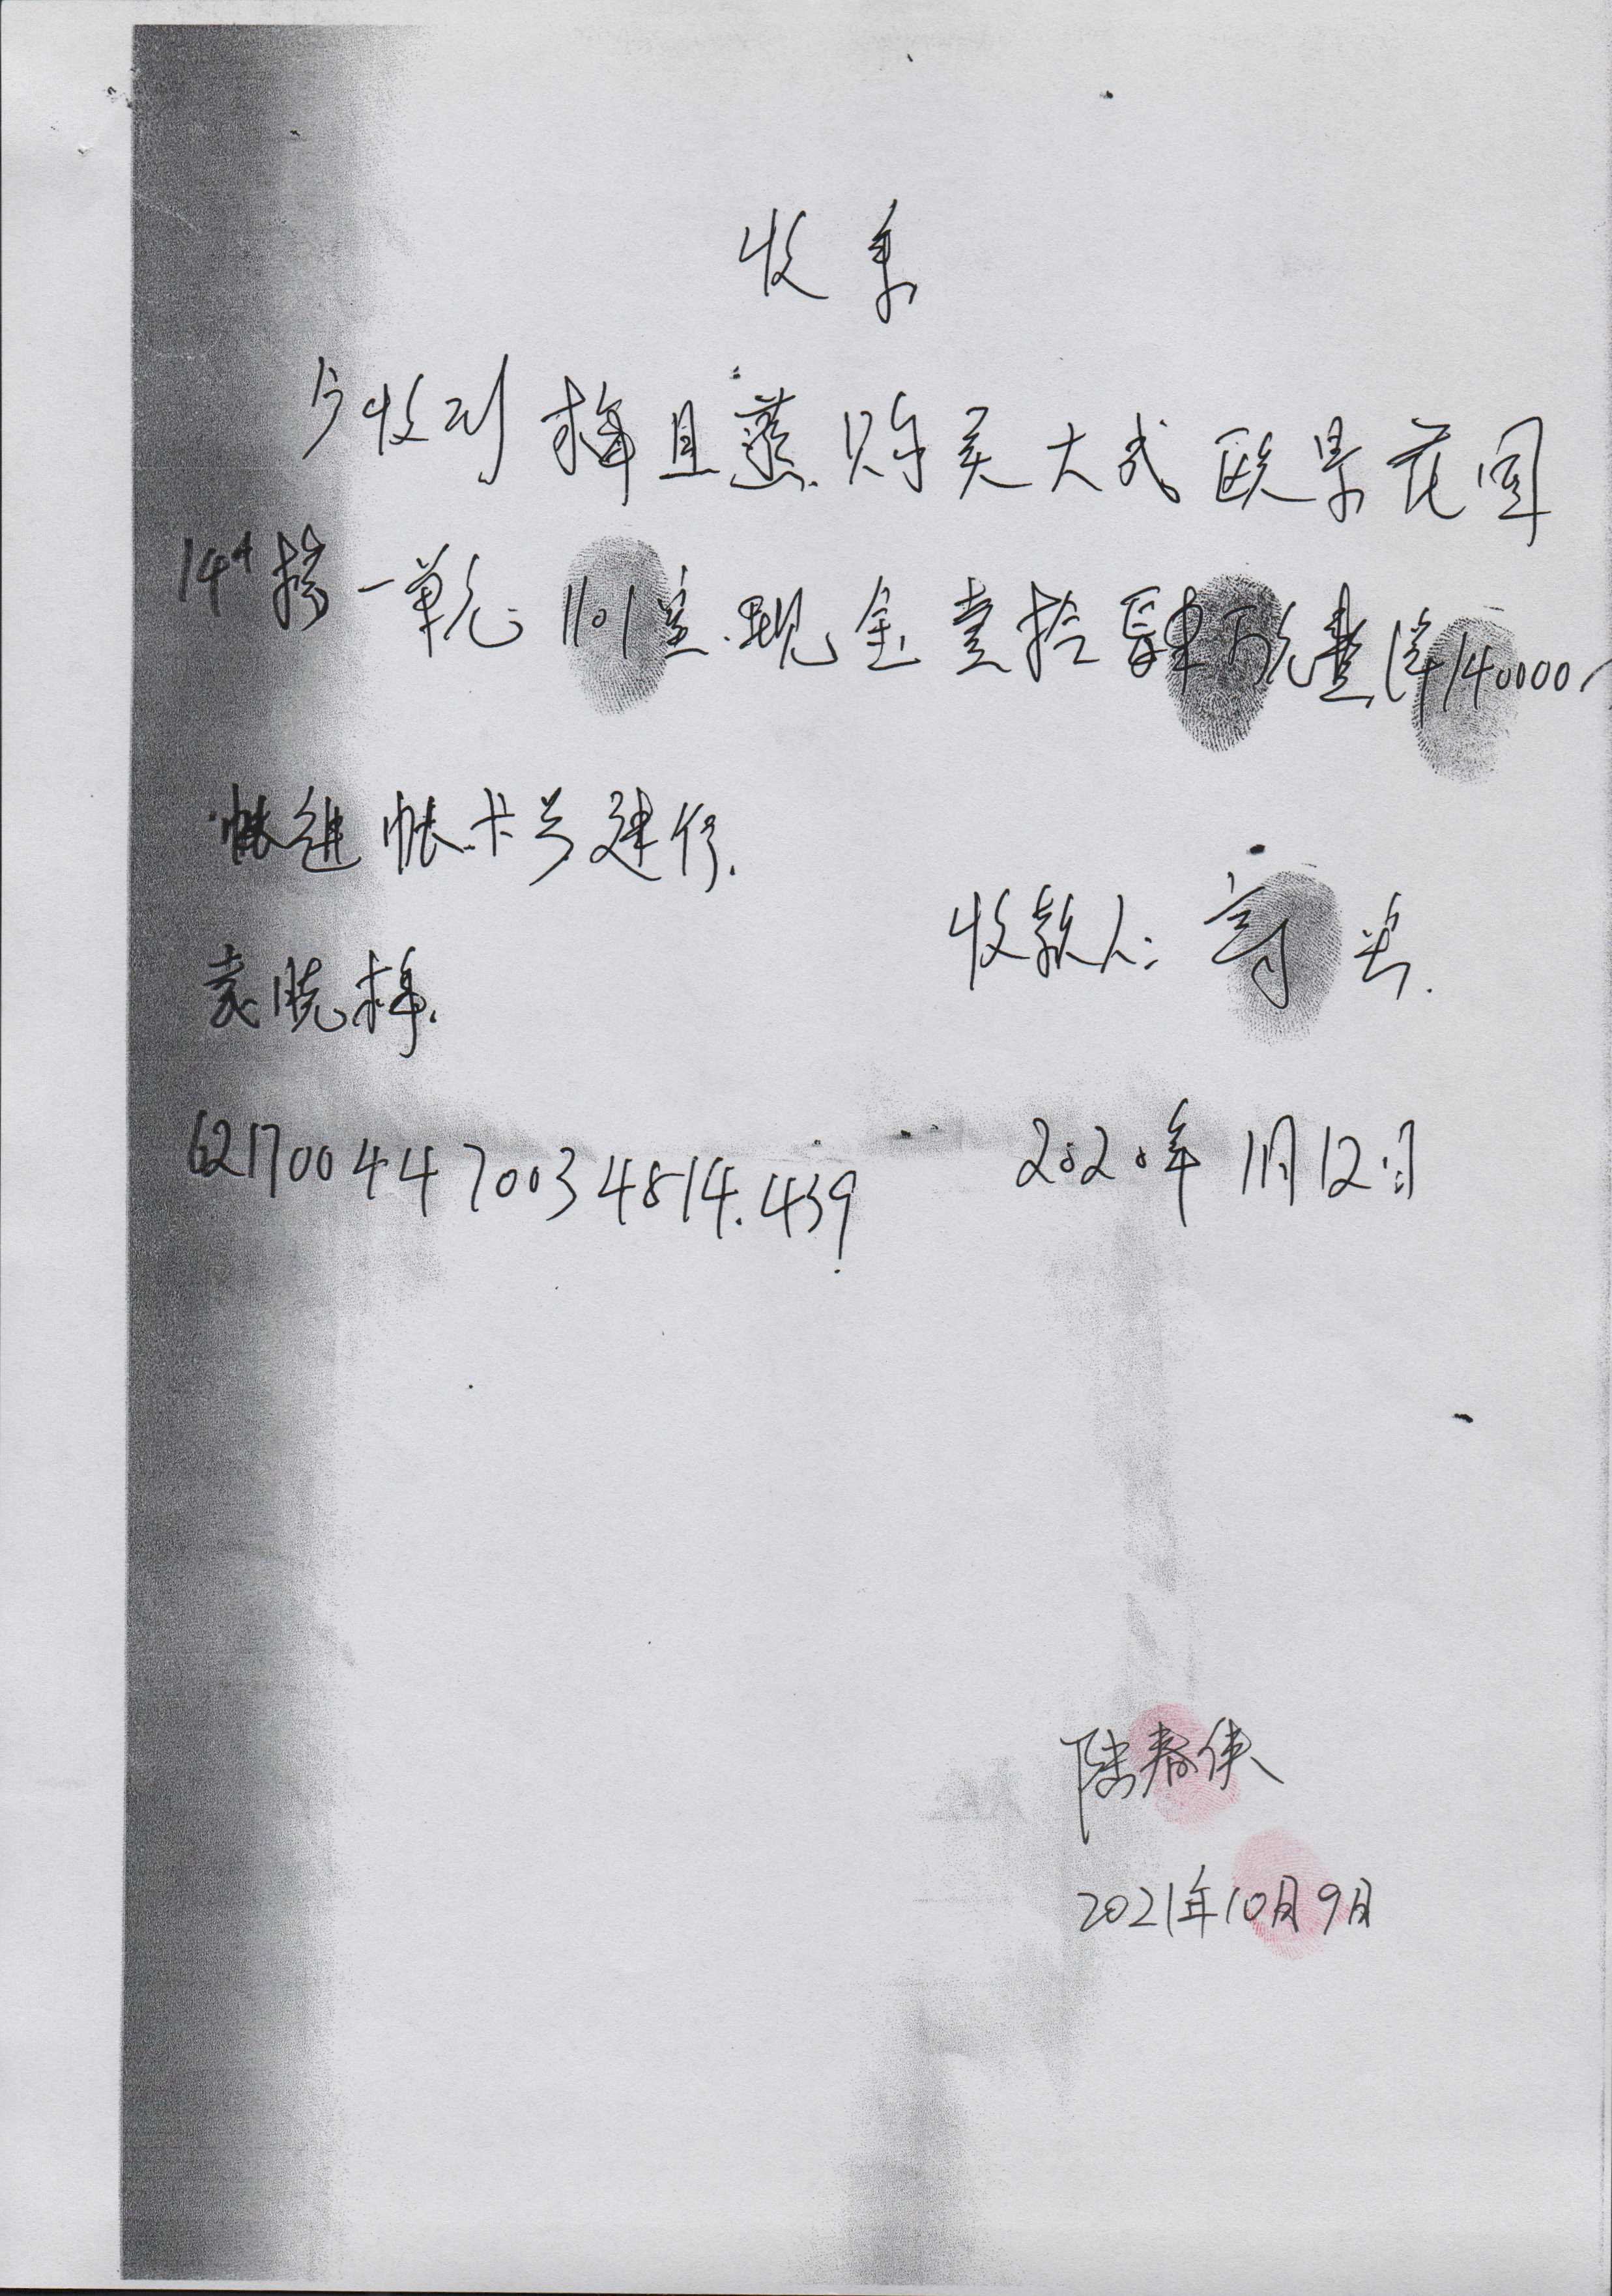 收条
今收到梅且燕购买大式欧景花园
14#楼一单元1101室.现金壹拾肆万元整(¥140000
帐进帐卡号建行.
袁晓梅.
收款人:
6217004470034814.439
2020年11月12日
陆春侠
2021年10月9日